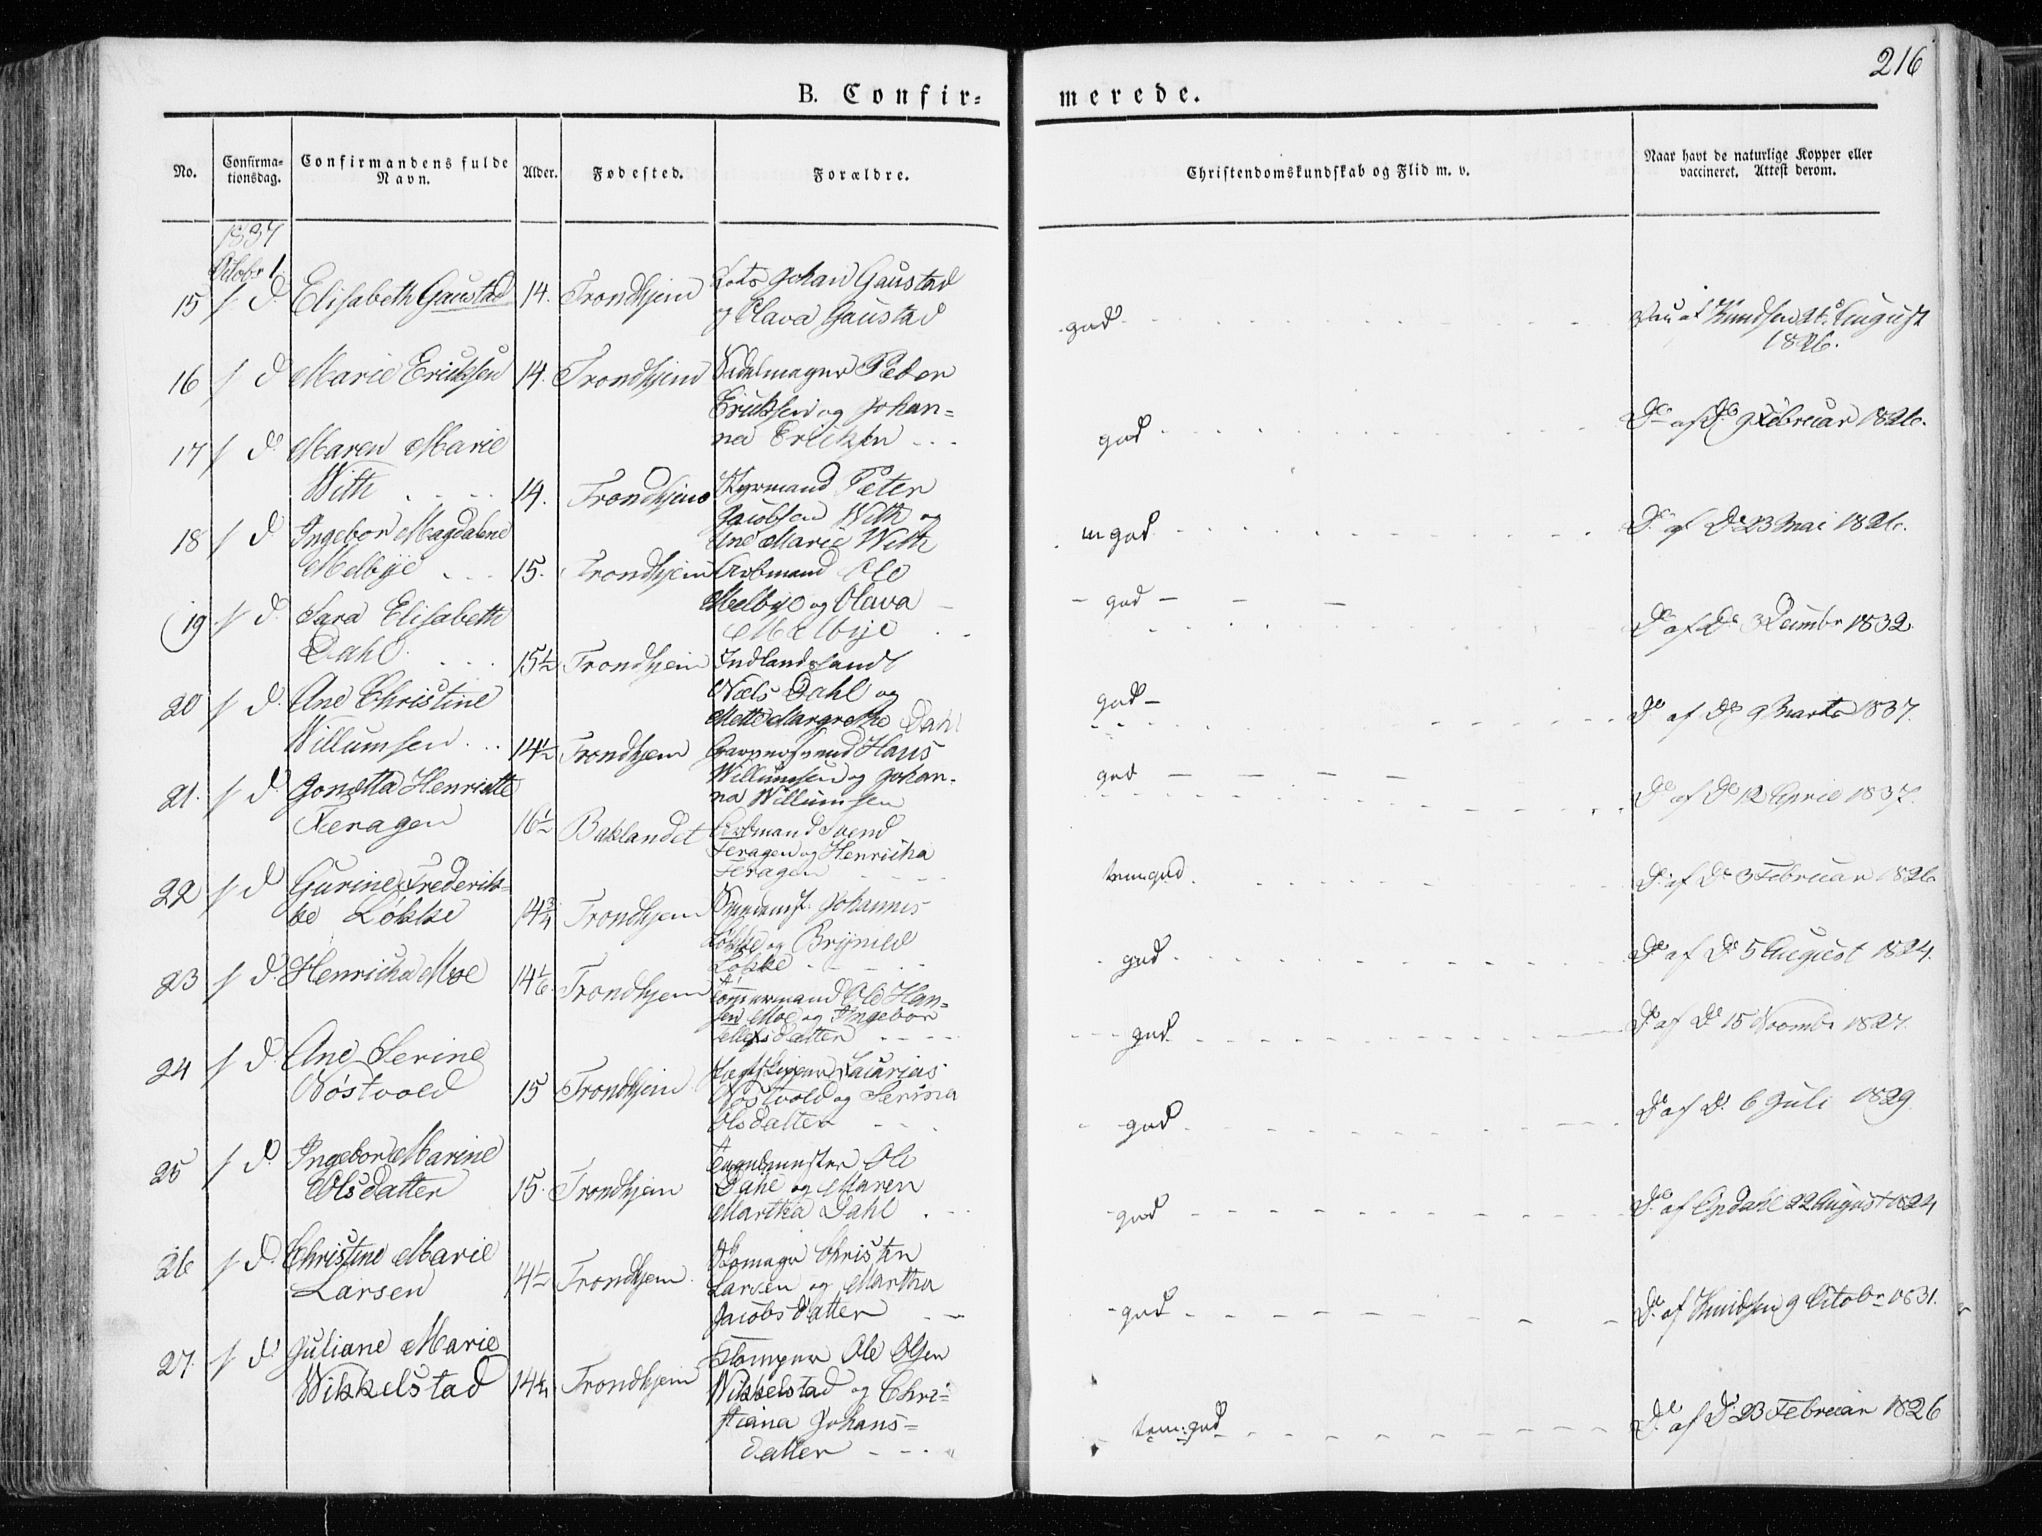 216
B. Confir-
merede.
No.
Confirma-
tionsdag.
Confirmandens fulde
Navn.
Alder.
Fødested.
Forældre.
Christendomskundskab og Flid m. v.
Naar havt de naturlige Kopper eller
vaccineret. Attest derom.
1837
Octobr 1.
15 / d. Elisabeth Gaustad 14. Trondhjem Johan Gaustad
og Olava Gaustad
god
Knudsen August
1826.
16 / d Marie Eriksen 14. Trondhjem Sadelmager Peder
Eriksen og Johan=
na Eriksen
god
Do af Do Februar 1826.
17 / d. Maren Marie
With 14. Trondhjem Styrmand Peter
Jacobsen With og
Ane Marie With
m god
Do af Do 23 Mai 1826.
18 / d Ingebor Magdalene
Melbye 15. Trondhjem Arbmand Ole
Melbye og Olava
Melbye
god
Do af Do 3 Decembr 1832.
19 / d. Sara Elisabeth
Dahl 15½ Trondhjem
Niels Dahl og
Mette Margrethe Dahl
god
Do af Do 9 Marts 1837.
20 / d. Ane Christine
Willumsen 14½ Trondhjem Hans
Willumsen og Johan-
na Willumsen
god
Do af Do 12 April 1837.
21. / d. Jonetta Henriette
Feragen 16½ Baklandet Arbmand Svend
Feragen og Henricha
Feragen
tem. god
Do af Do 3 Februar 1826
22 / d Gurine Frederik-
ke Løkke 14¾ Trondhjem Johannes
Løkke og Brynild
Løkke
god
Do af Do 5 August 1824.
23 / d. Henricha Moe 14⅙ Trondhjem Tømmermand Ole Han=
sen Moe og Ingebor
datter
god
Do af Do 15 Novembr 1827.
24 / d. Ane Serine
Røstvold 15 Trondhjem Zacarias
Røstvold og Serina
Olsdatter
god
Do af Do 6 Juli 1829
25 / d. Ingebor Marine
Olsdatter 15. Trondhjem Ole
Dahl og Maren
Martha Dahl
god
Do af Opdahl 22 August 1824
26 / d. Christine Marie
Larsen 14½ Trondhjem. Skomager Christen
Larsen og Martha
Jacobsdatter
god
Do af Knudsen 9 Octobr 1831.
27. / d. Juliane Marie
Wikkelstad 14¼ Trondhjem Stomper Ole Olsen
Wikkelstad og Chri-
stiana Johans=
datter
tem: god
Do af Do 23 Februar 1826